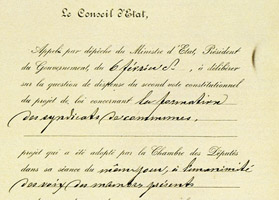 Le Conseil d'Etat,
Appelé par dépêche du Ministre d'Etat, Président
du Gouvernement, du 6 février c., à délibérer
sur la question de dispense du second vote constitutionnel
du projet de loi concernant la formation
des syndicats de communes,
projet qui a été adopté par la Chambre des Députés
dans sa séance du même jour, à l'unanimité
des voix des membres présents